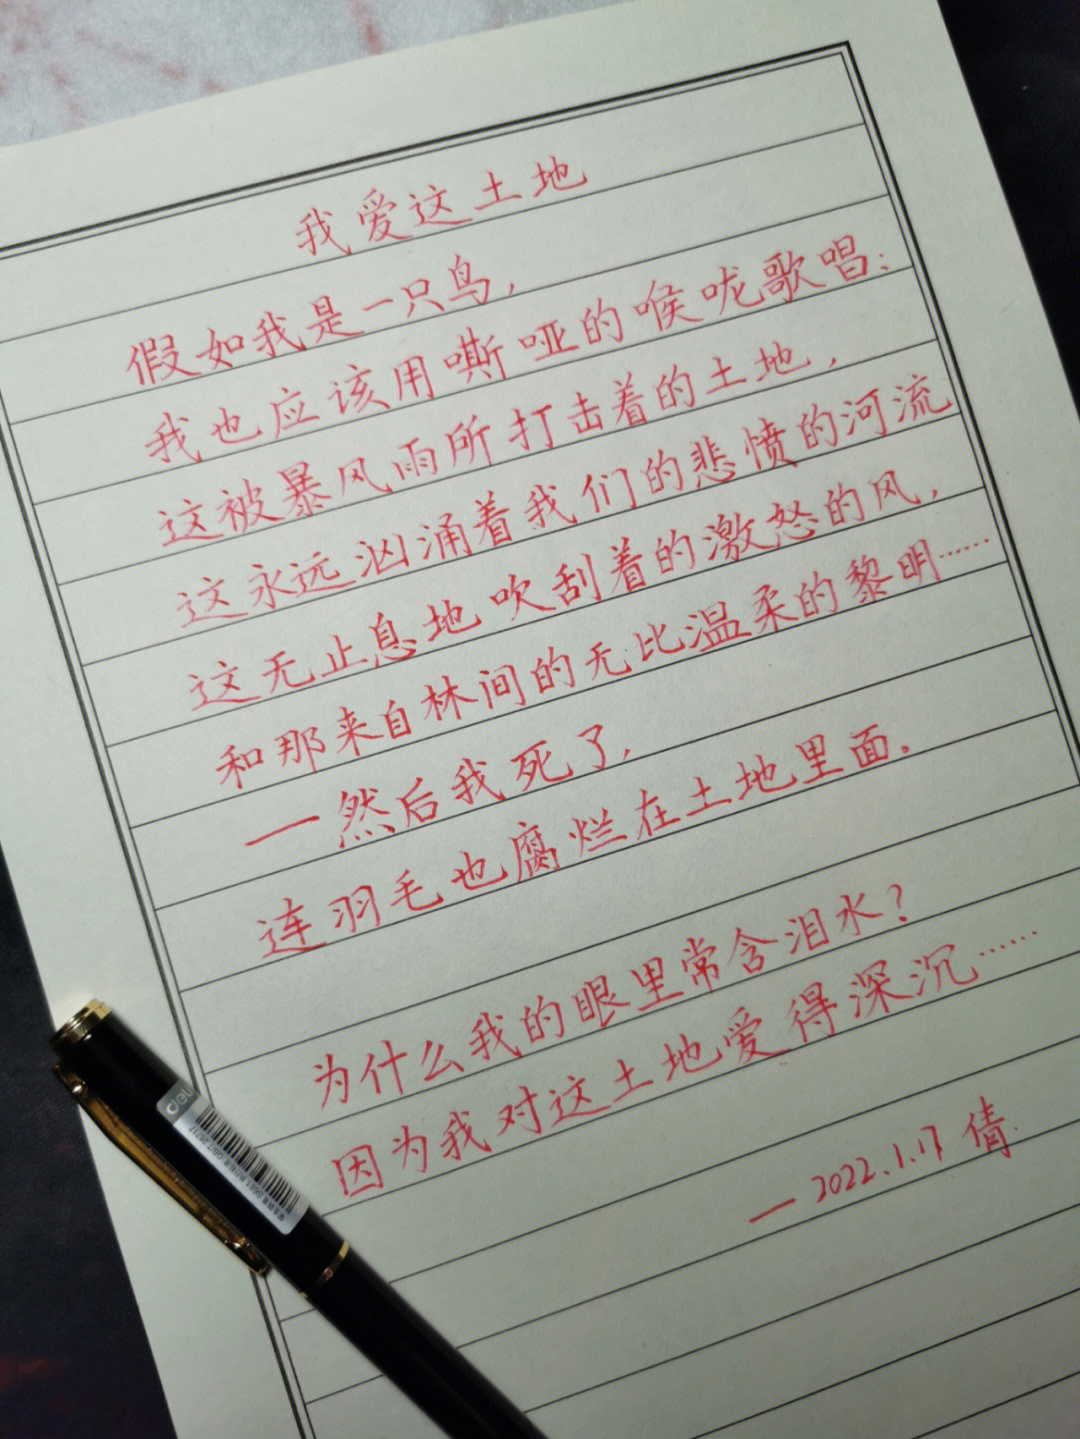 我爱这土地
假如我是一只鸟，
我也应该用嘶哑的喉咙歌唱：
这被暴风雨所打击着的土地，
这永远汹涌着我们的悲愤的河流
这无止息地吹刮着的激怒的风，
和那来自林间的无比温柔的黎明……
—然后我死了，
连羽毛也腐烂在土地里面。
为什么我的眼里常含泪水？
因为我对这土地爱得深沉……
—2022.1.17 倩
deli